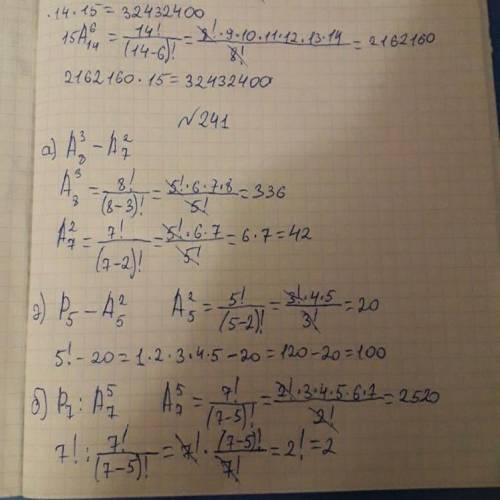 ·14·15 = 32432400
15A₁₄⁶ = 14!/(14-6)! = 8!·9·10·11·12·13·14/8! = 2162160
2162160·15 = 32432400
№241
а) A₈³ - A₇²
A₈³ = 8!/(8-3)! = 5!·6·7·8/5! = 336
A₇² = 7!/(7-2)! = 5!·6·7/5! = 6·7 = 42
г) P₅ - A₅² A₅² = 5!/(5-2)! = 3!·4·5/3! = 20
5! - 20 = 1·2·3·4·5 - 20 = 120 - 20 = 100
б) P₇ : A₇⁵ A₇⁵ = 7!/(7-5)! = 2!·3·4·5·6·7/2! = 2520
7! : 7!/(7-5)! = 7!·(7-5)!/7! = 2! = 2